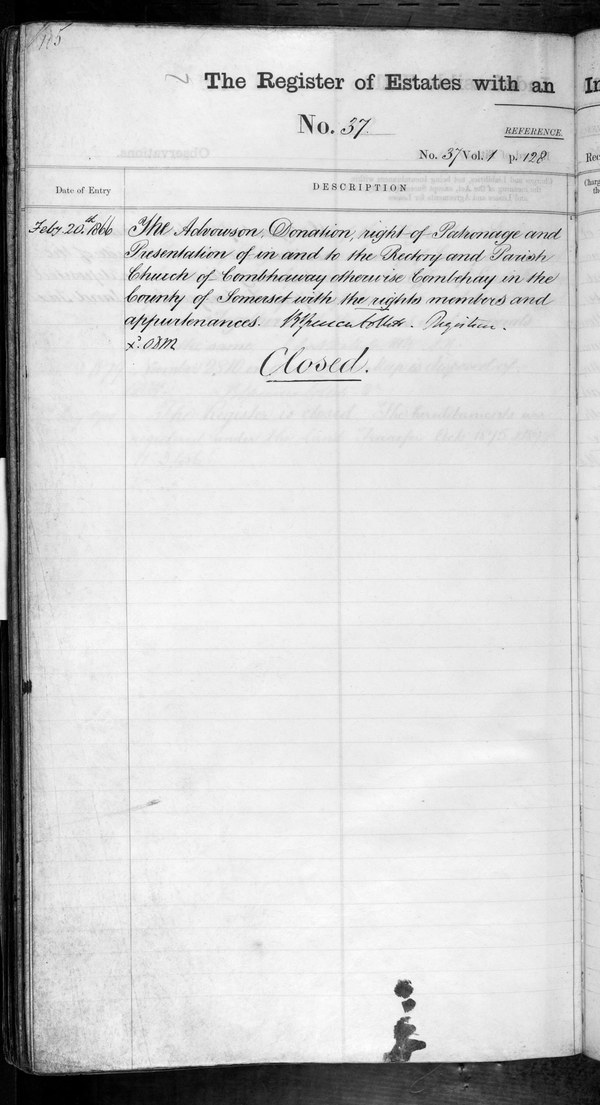 115
The Register of Estates with an In
No. 37
REFERENCE.
No. 37 Vol. 1 p. 128
Date of Entry
DESCRIPTION
Feby 20th 1866
The Advowson, Donation, right of Patronage and
Presentation of in and to the Rectory and Parish
Church of Combhaway otherwise Combhay in the
County of Somerset with the rights members and
appurtenances. Registrar.
Closed.